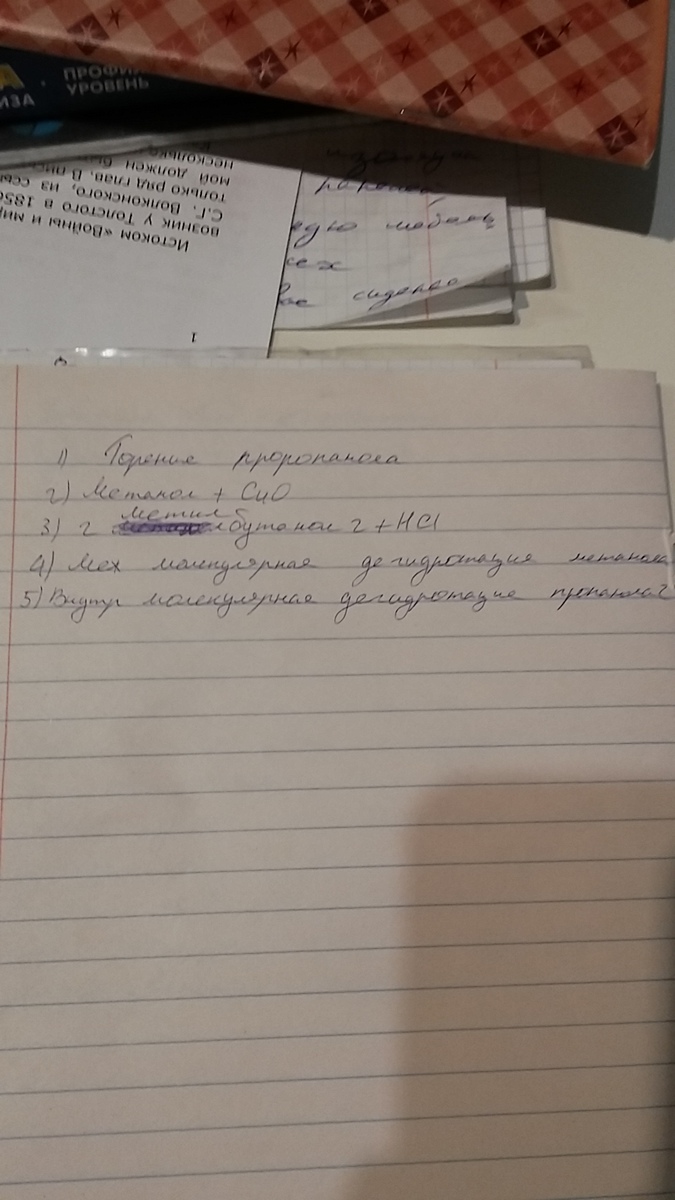 ПРОФИ
УРОВЕНЬ
А
ИЗА
Истоком «Войны и мир
возник у Толстого в 185
С.Г. Волконского, из, ссы
только ряд глав. В пис
мой должен бы
несколько
1
сех
сиденье
1) Горение пропопанола
2) Метанол + CuO
метил
3) 2 бутанол 2 + HCl
4) Меж молекулярная дегидротация метанола
5) Внутр молекулярная дегидротация пропанола 2